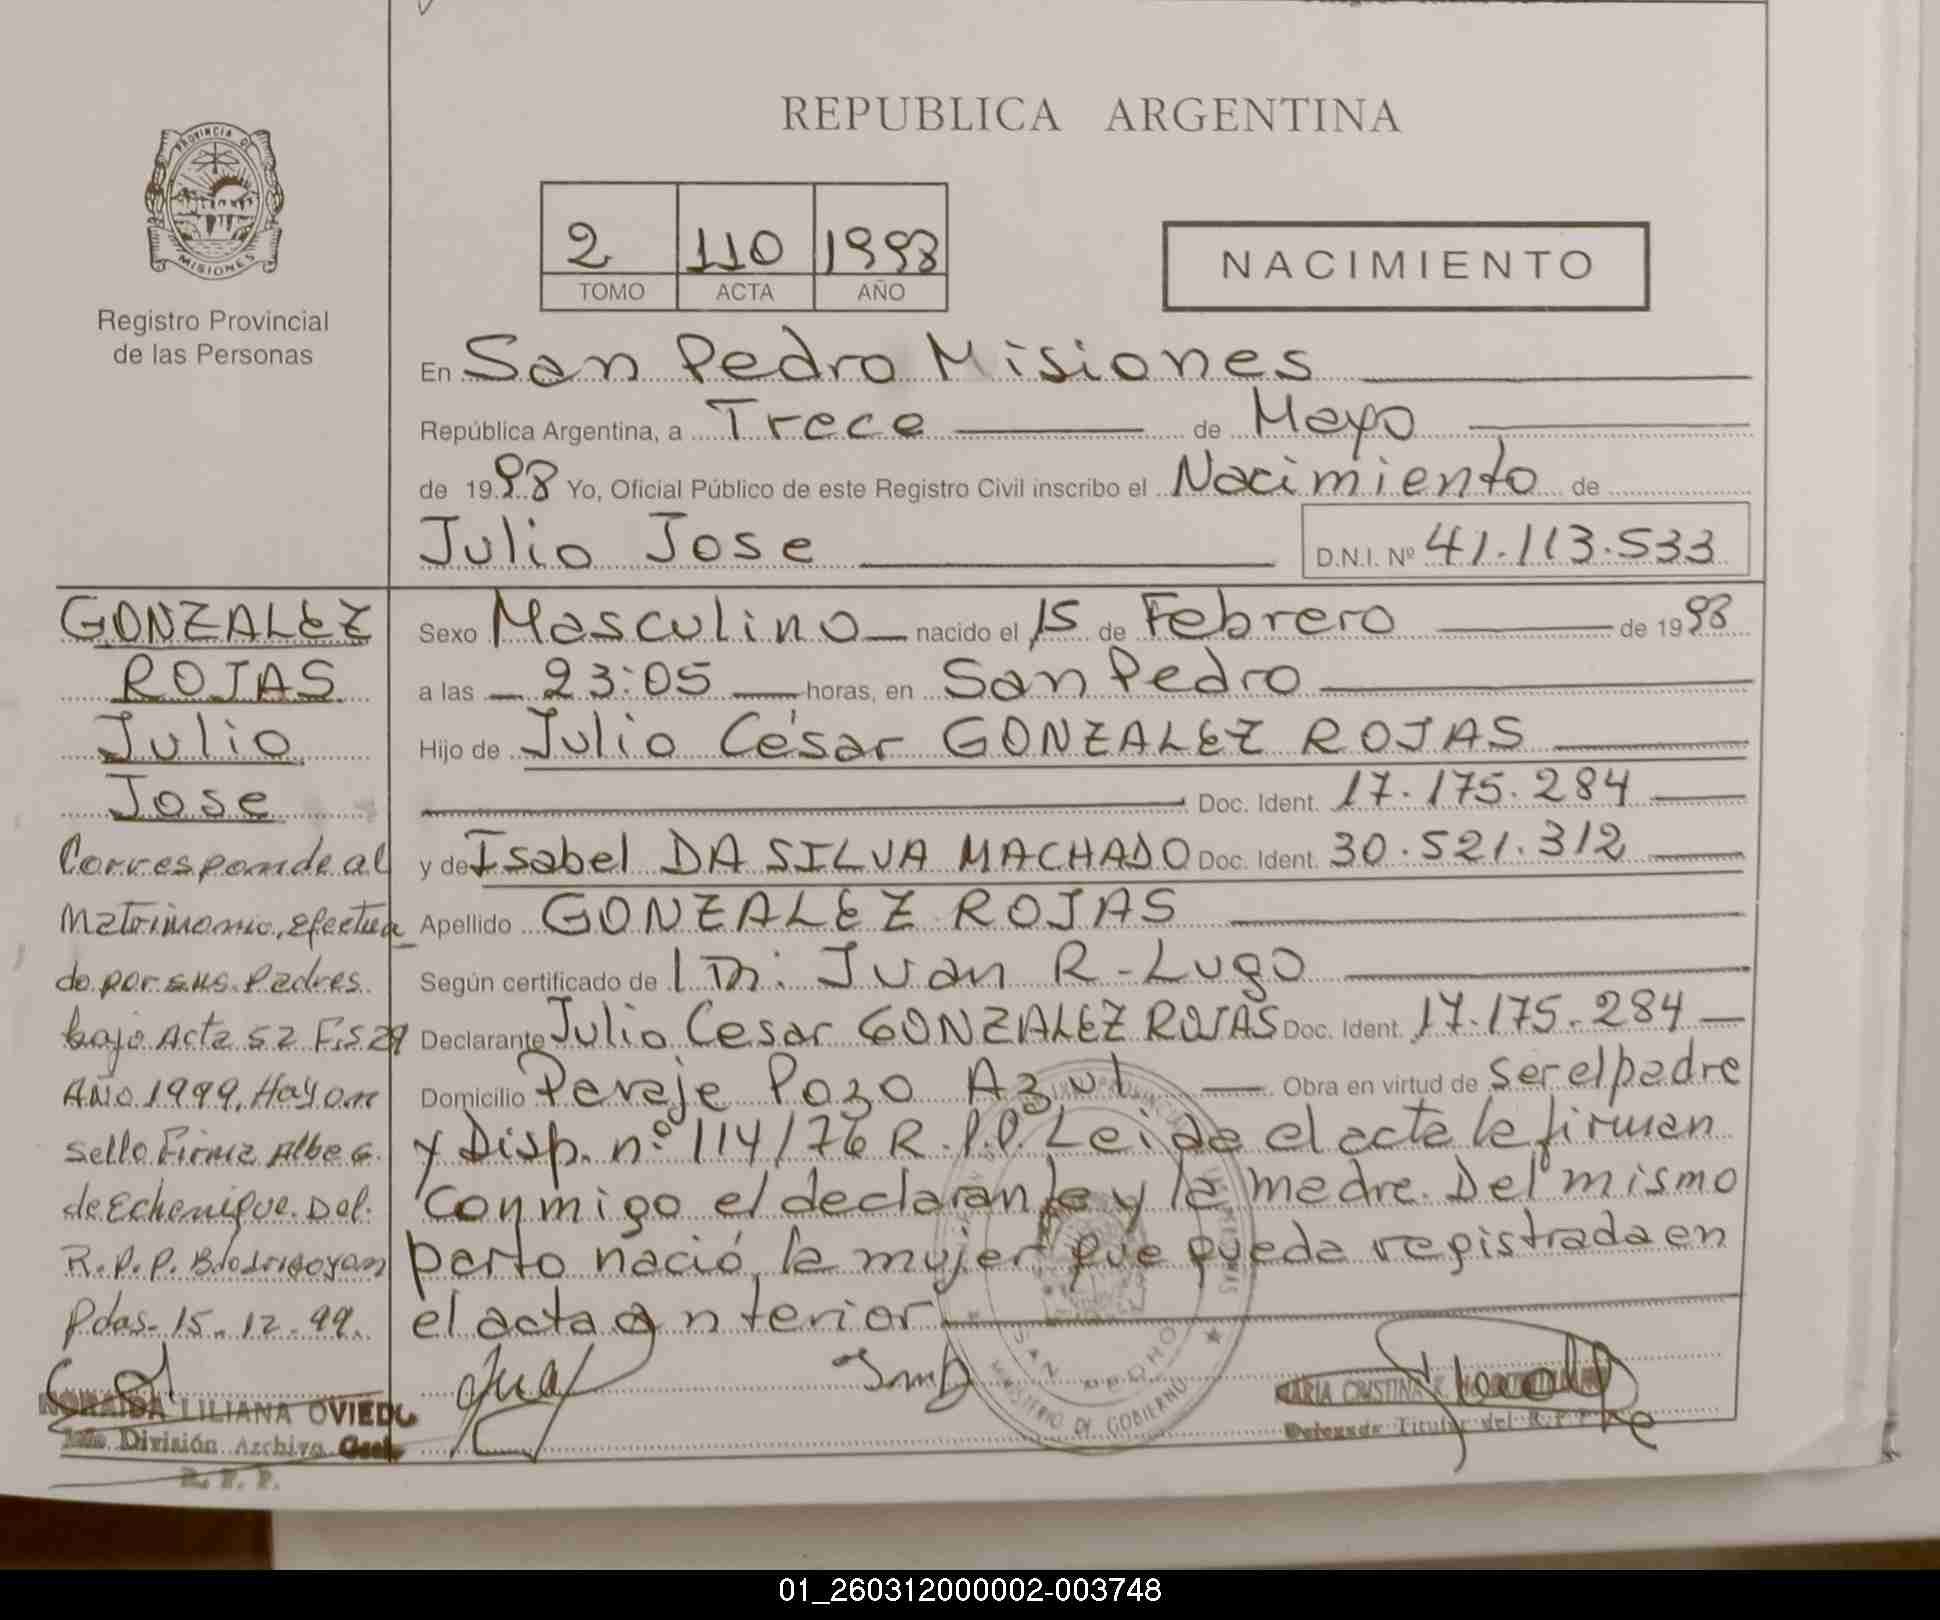 REPUBLICA ARGENTINA
PROVINCIA DE
MISIONES
Registro Provincial
de las Personas
2 110 1998
TOMO ACTA AÑO
NACIMIENTO
En San Pedro Misiones
República Argentina, a Trece de Mayo
de 1998 Yo, Oficial Público de este Registro Civil inscribo el Nacimiento de
Julio Jose D.N.I. Nº 41.113.533
GONZALEZ
ROJAS
Julio
Jose
Corresponde al
Matrimonio, efectua
do por sus Padres
bajo Acta 52 F:s 29
Año 1999. Hay on
sello Firma Alba G.
de Echenique. Del.
R.P.P.
Pdas. 15.12.99.
LILIANA OVIEDO
División Archivo Gral.
R. P. P.
Sexo Masculino nacido el 15 de Febrero de 1998
a las 23:05 horas, en San Pedro
Hijo de Julio César GONZALEZ ROJAS
Doc. Ident. 17.175.284
y de Isabel DA SILVA MACHADO Doc. Ident. 30.521.312
Apellido GONZALEZ ROJAS
Según certificado de Juan R. Lugo
Declarante Julio Cesar GONZALEZ ROJAS Doc. Ident. 17.175.284
Domicilio Paraje Pozo Azul Obra en virtud de ser el padre
y Disp. nº 114/76 R.P.P. Leida el acta la firman
conmigo el declarante y la madre. Del mismo
parto nació la mujer que queda registrada en
el acta anterior
SAN PEDRO
MINISTERIO DE GOBIERNO
MARIA CRISTINA
Delegada Titular del R.P.P.
01_260312000002-003748